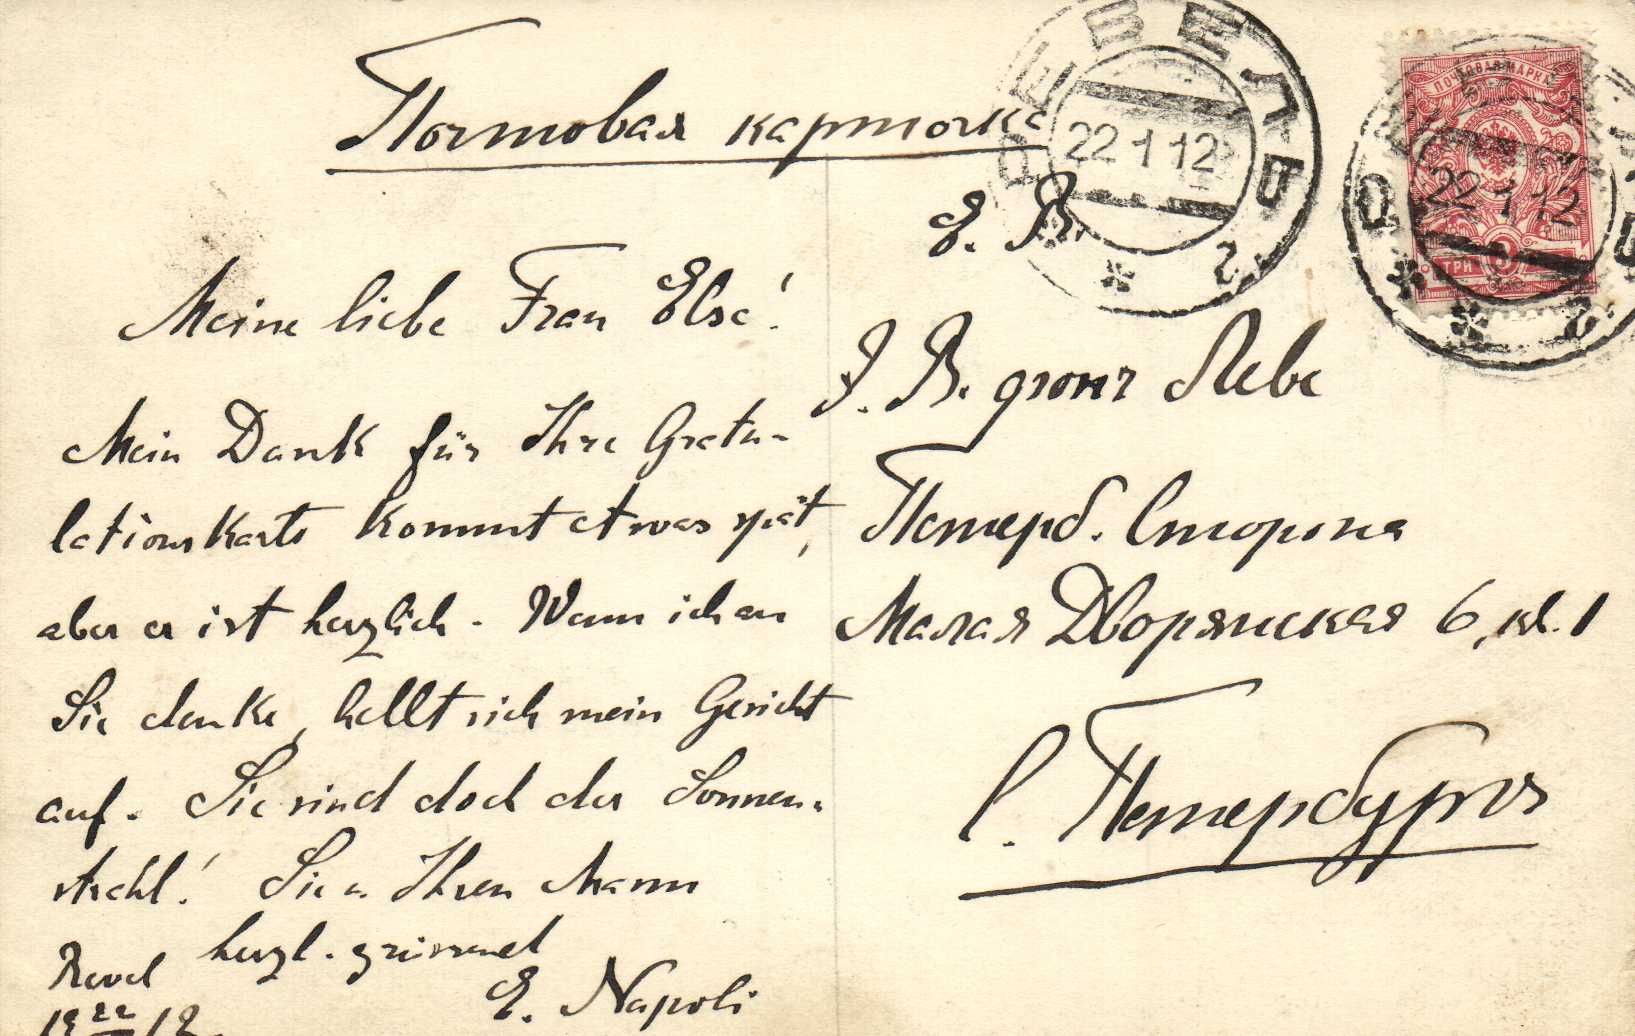 Почтовая карточка
Е. В.
Э. В. фонъ Лёве
Петерб. Сторона
Малая Дворянская 6, кв. 1
С. Петербургъ
Meine liebe Frau Else!
Mein Dank für Ihre Gratu-
lationskarte kommt etwas spät,
aber er ist herzlich. Wenn ich an
Sie denke, hellt sich mein Gesicht
auf. Sie sind doch der Sonnen-
strahl! Sie u. Ihren Mann
herzl. grüssend
E. Napoli
Reval
12
РЕВЕЛЬ
22 1 12
г
ПОЧТОВАЯ МАРКА
22 1 12
ТРИ 3